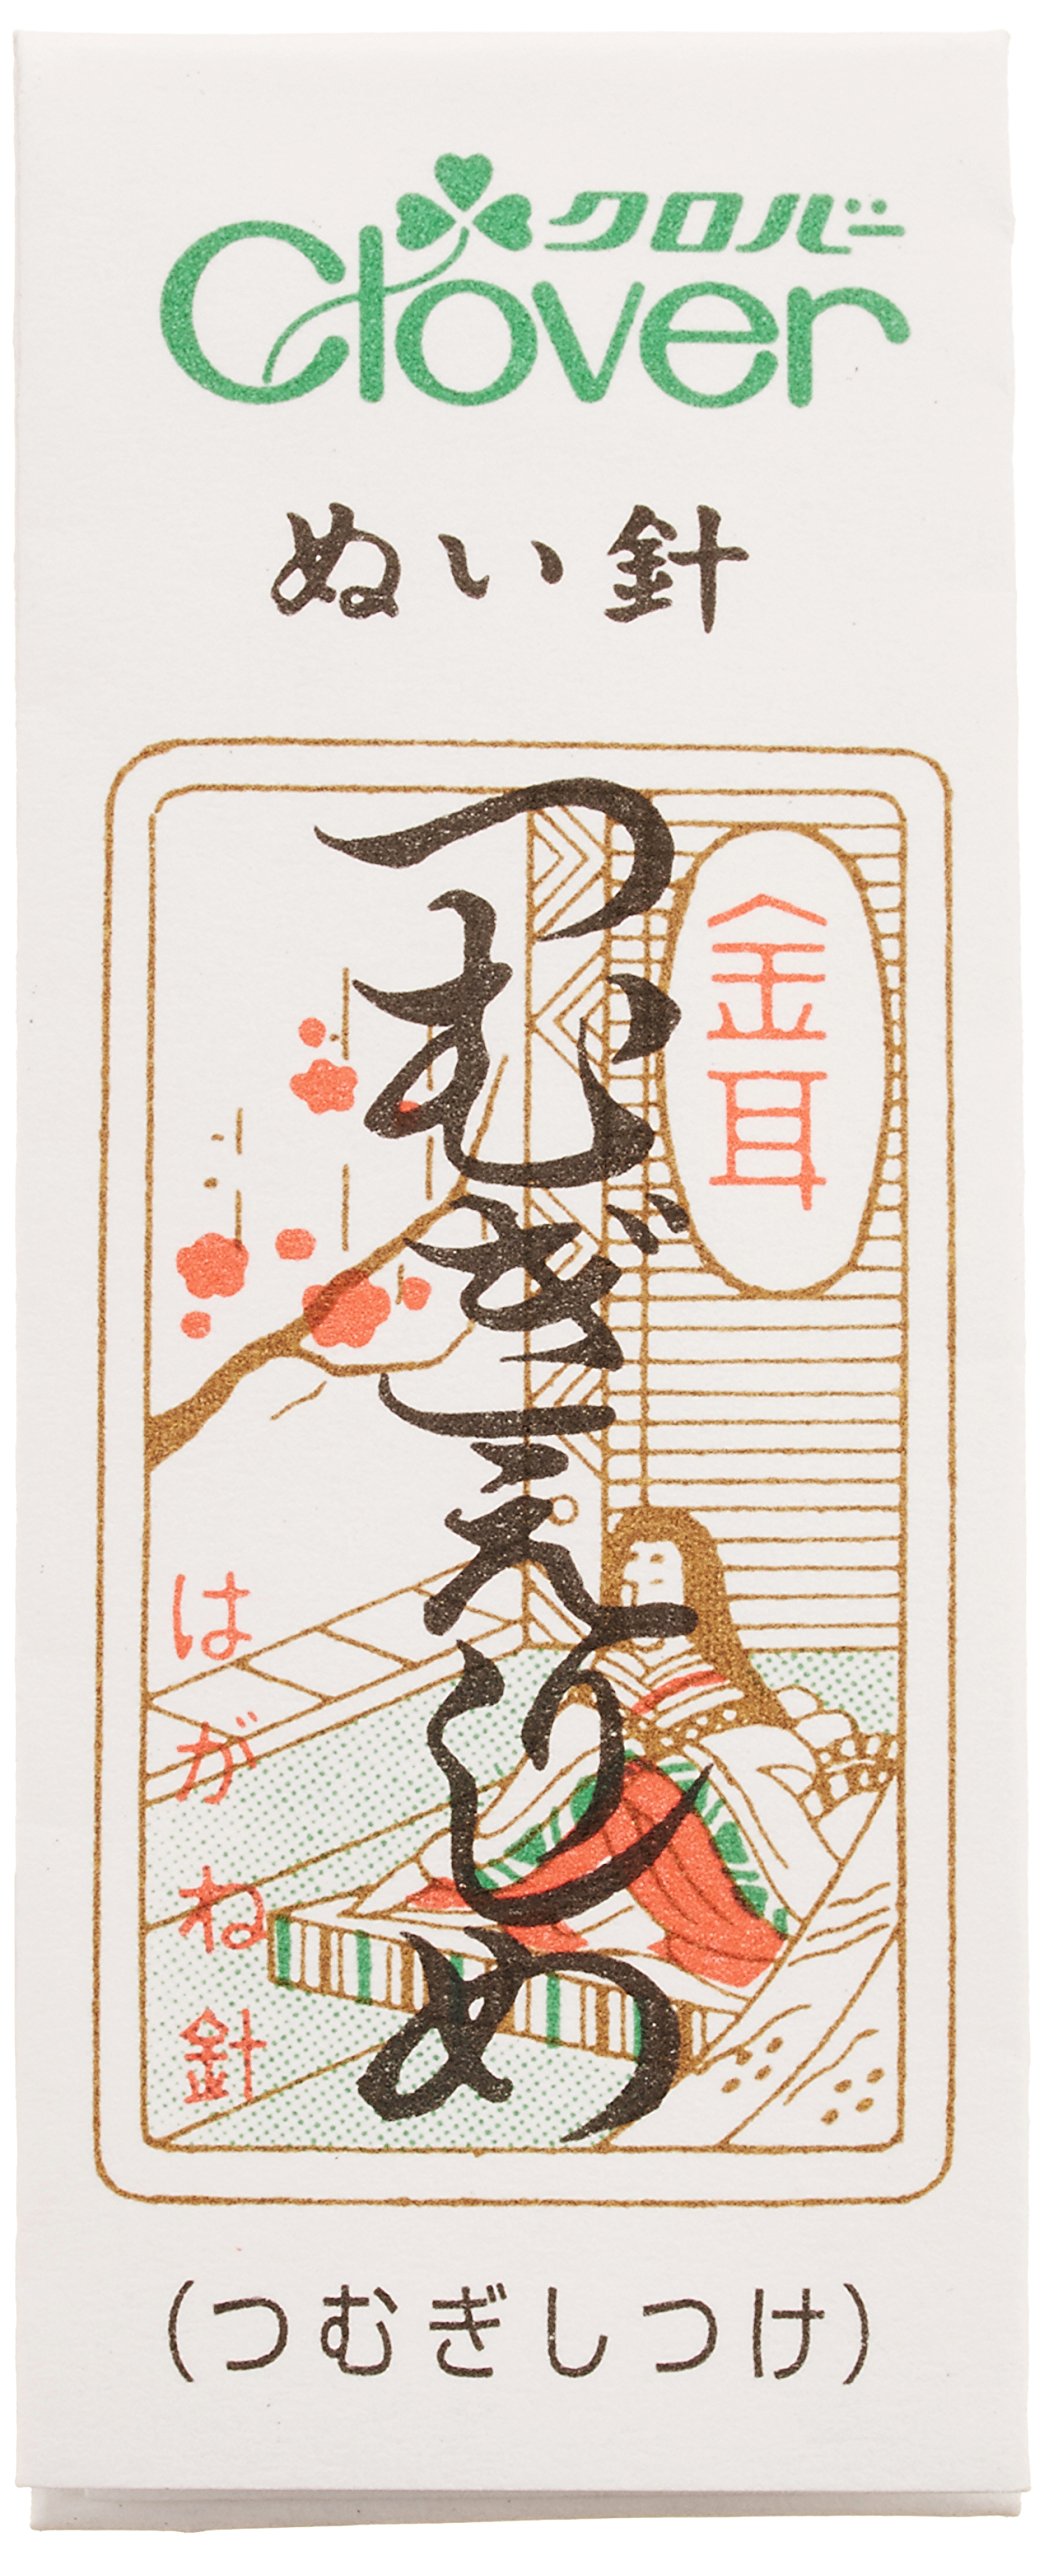 クロバー
Clover
ぬい針
金耳
つむぎえりしめ
はがね針
(つむぎしつけ)